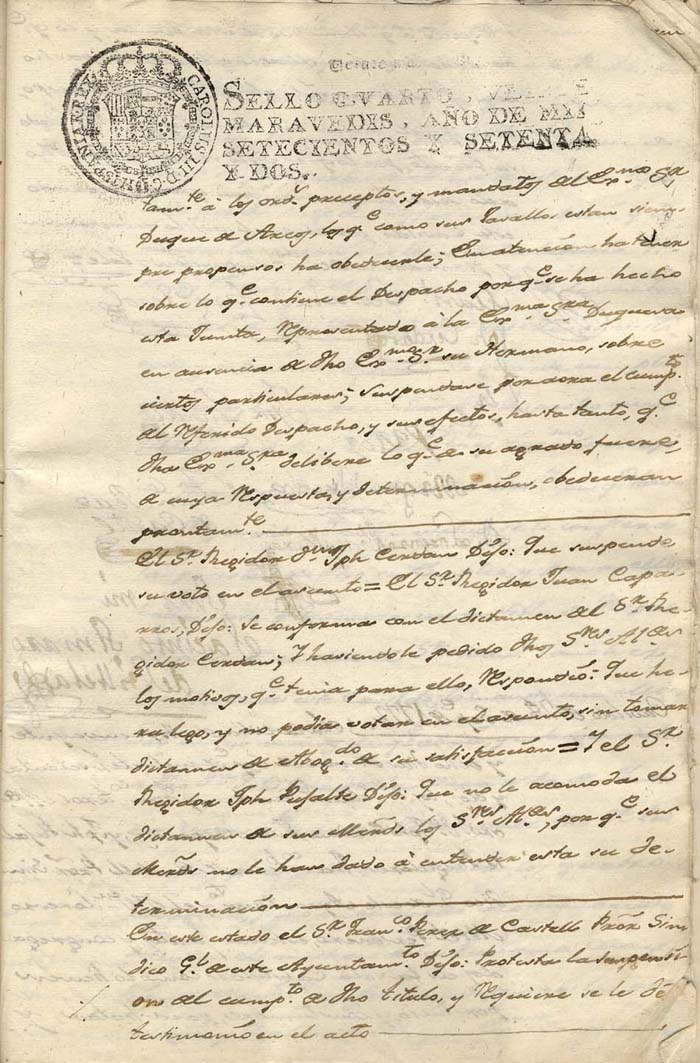 CAROLUS III D.G. HISPANIAR. REX
SELLO QVARTO, VEINTE
MARAVEDIS, AÑO DE MIL
SETECIENTOS Y SETENTA
Y DOS.
tamte. à los ords. preceptos, y mandatos del Exmo. Sr.
Duque de Arcos, los qe. como sus Vasallos estan siem
pre propensos ha obedecerle; En atencion ha tener
sobre lo qe. contiene el Despacho por qe. se ha hecho
esta Junta, Representado à la Exma. Sra. Duquesa
en ausencia de dho Exmo. Sr. su Hermano, sobre
ciertos particulares; suspendase por aora el cumpto.
del Referido Despacho, y sus efectos, hasta tanto, qe.
dha Exma. Sra. delibere lo qe. de su agrado fuere,
a cuya Respuesta, y determinacion, obedeceran
prontamte.
El Sr. Regidor Dn. Jph Cerdan Dijo: Que suspende
su voto en el asunto = El Sr. Regidor Juan Capa
rros, Dijo: Se conforma con el dictamen del Sr. Re
gidor Cerdan; Y haviendole pedido dhos Sres. Alces.
los motivos, qe. tenia para ello, Respondio: Que he
ra lego, y no podia votar en el asunto, sin tomar
dictamen de Abogdo. de su satisfacción = Y el Sr.
Regidor Jph Dijo: Que no le acomoda el
dictamen de sus Mercds. los Sres. Alces., por qe. sus
Mercds. no le han dado à entender esta su de
terminacion
En este estado el Sr. Franco. Perez de Castell Pror. Sin
dico Gl. de este Ayuntamto. Dijo: Protesta la suspensi
on del cumpto. de dho titulo, y Requiere se le dè
testimonio en el acto